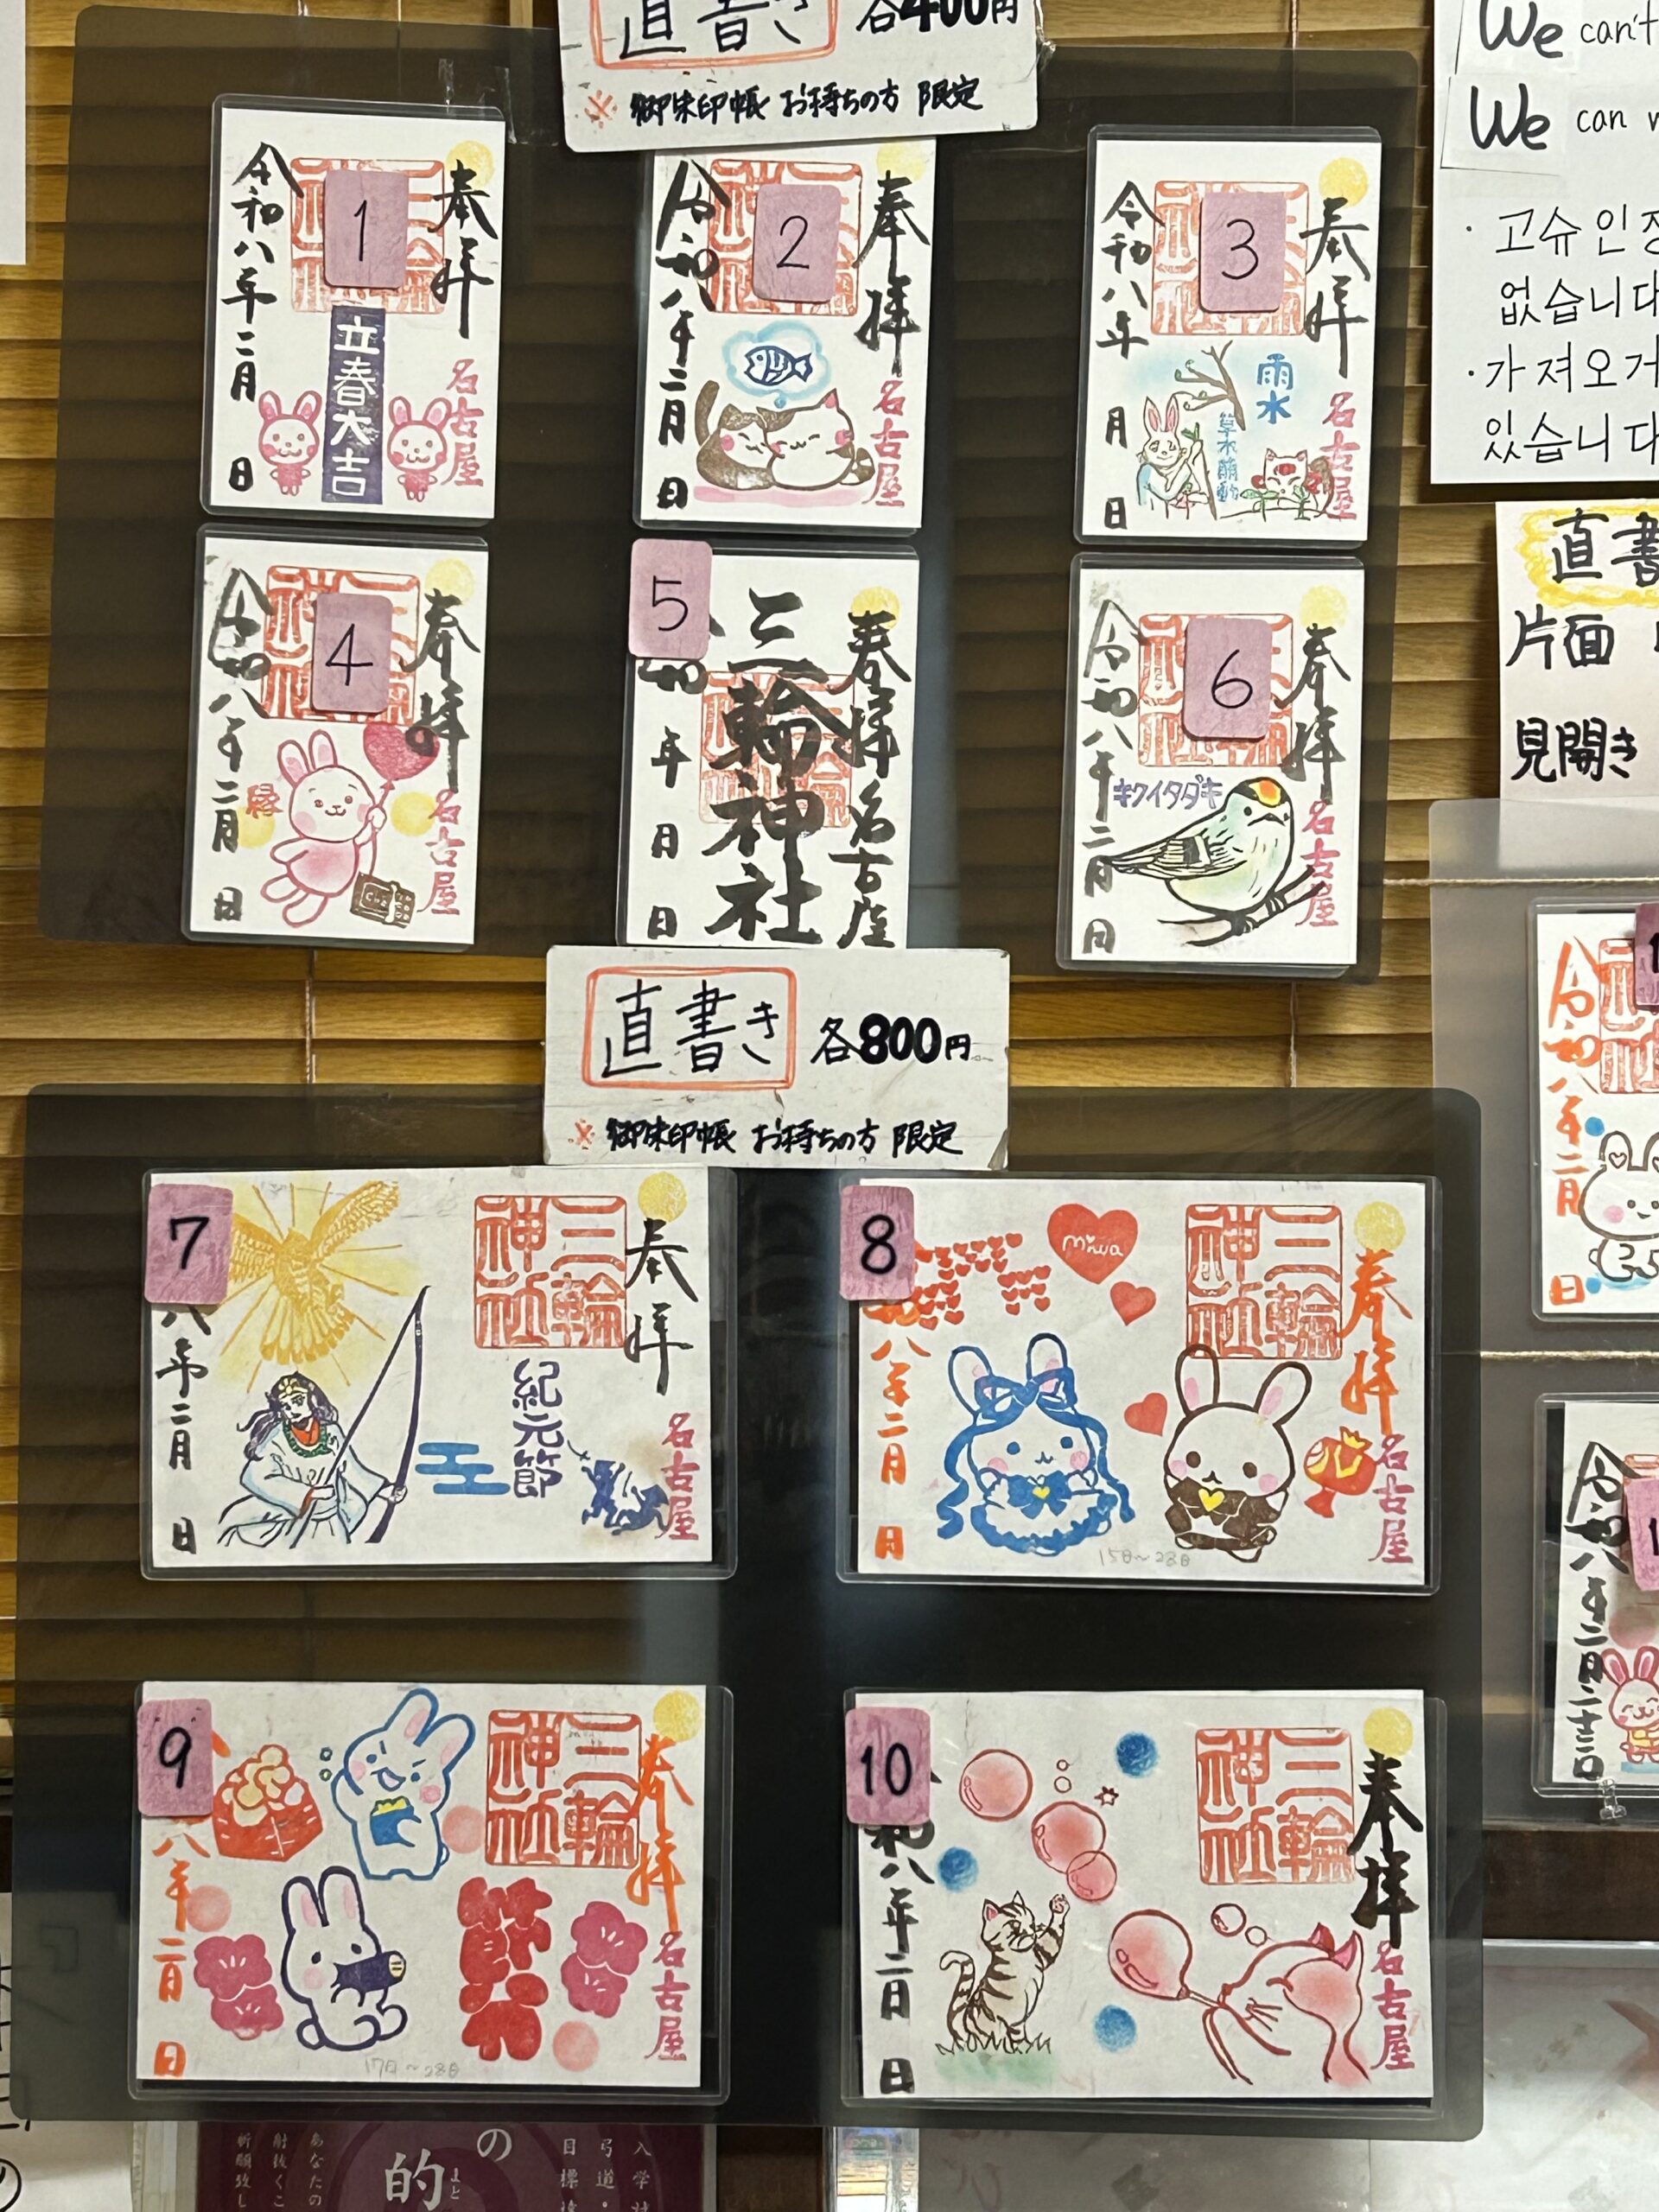 直書き 各400円
※ 御朱印帳 お持ちの方 限定
1
奉拝
立春大吉
名古屋
令和八年二月 日
2
奉拝
名古屋
令和八年二月 日
3
奉拝
雨水
草木萌動
名古屋
令和八年 月 日
4
奉拝
縁
名古屋
令和八年二月 日
5
奉拝 名古屋
三輪神社
年 月 日
6
奉拝
キクイタダキ
名古屋
令和八年二月 日
直書き 各800円
※ 御朱印帳 お持ちの方 限定
7
奉拝
三輪神社
紀元節
名古屋
八年二月 日
8
奉拝
三輪神社
miwa
名古屋
八年二月 日
15日～28日
9
奉拝
三輪神社
節分
名古屋
八年二月 日
17日～28日
10
奉拝
三輪神社
名古屋
和八年二月 日
We can't
We can
· 고슈인장
없습니다
· 가져오거
있습니다
直書
片面
見開き
令和八年二月
日
令和八年二月二十二日
入学
弓道・
目標
の
的
まと
あなたの
射抜くこ
祈願致し